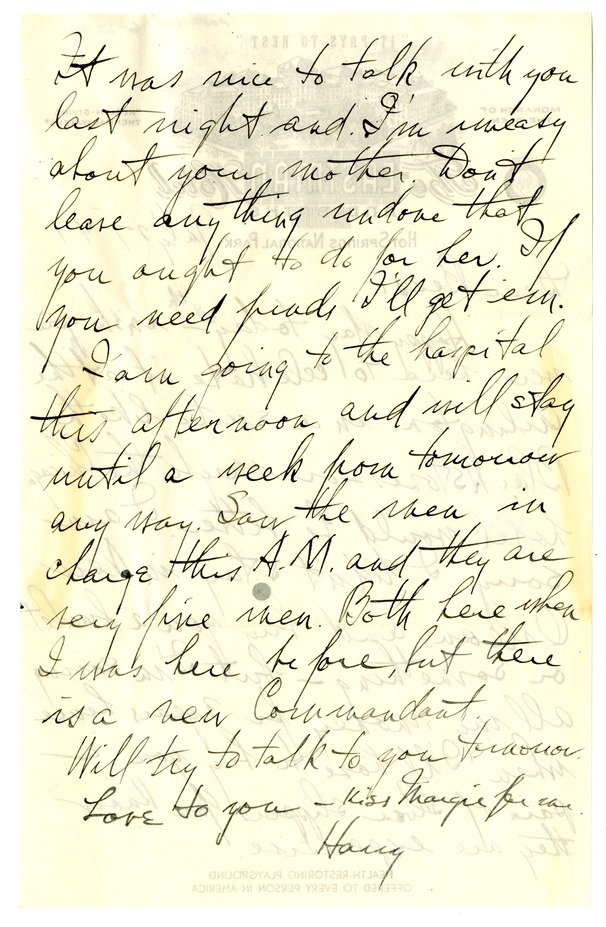 It was nice to talk with you
last night and I'm uneasy
about your mother. Don't
leave anything undone that
you ought to do for her. If
you need funds I'll get em.
I am going to the hospital
this afternoon and will stay
until a week from tomorrow
any way. Saw the men in
charge this A.M. and they are
very fine men. Both here when
I was here before, but there
is a new Commandant.
Will try to talk to you tomorrow.
Love to you - Kiss Margie for me.
Harry
HEALTH-RESTORING PLAYGROUND
OFFERED TO EVERY PERSON IN AMERICA